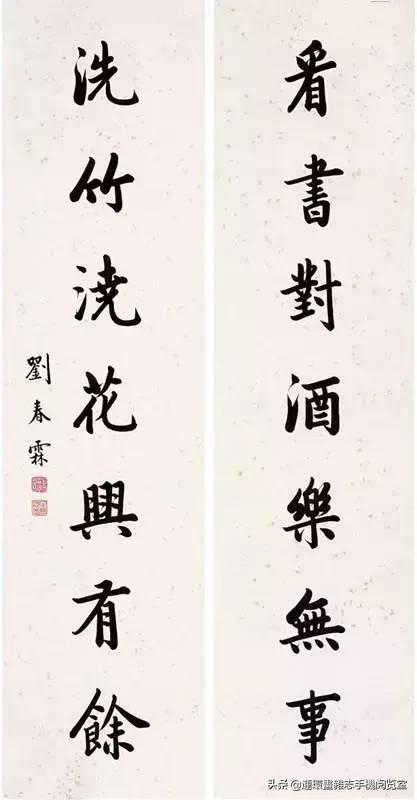 看書對酒樂無事
洗竹澆花興有餘
劉春霖
头条 @連環畫雜志手機阅览室